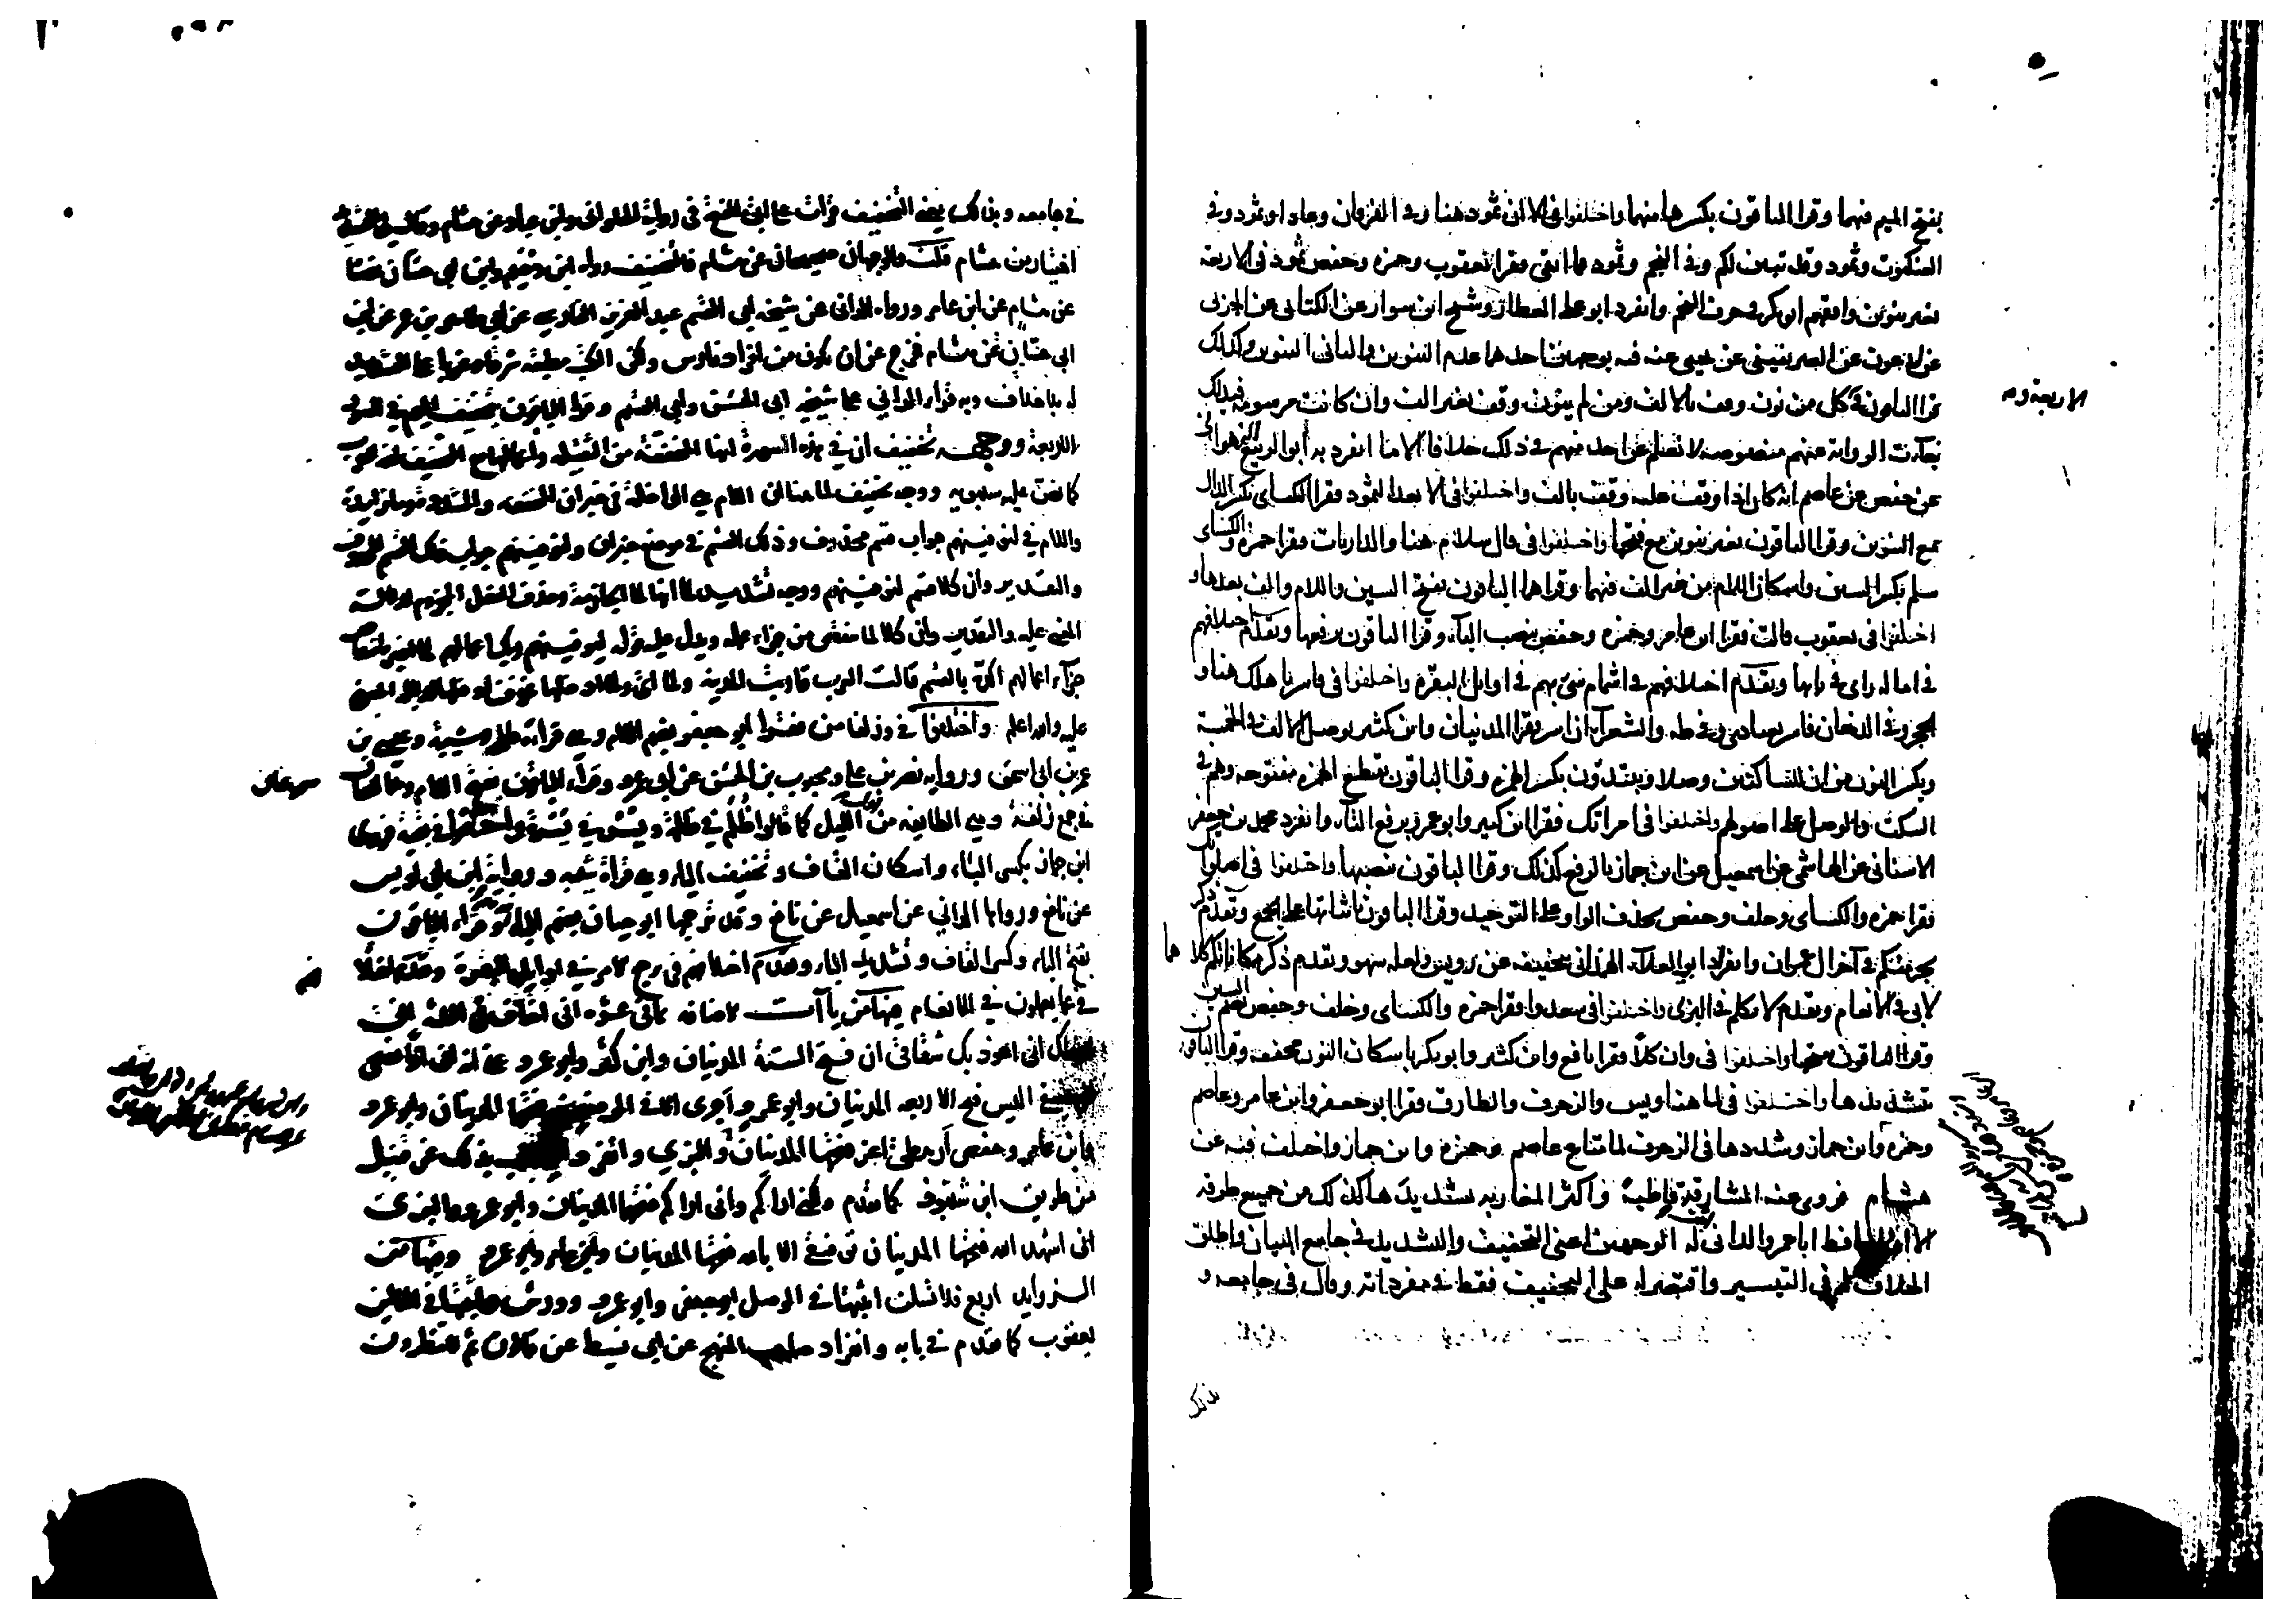 بفتح الميم فيهما وقرا الباقون بكسرها منهما واختلفوا في الا ان ثمود هنا وفي الفرقان وعادا وثمود وفي
العنكبوت وثمود وقد تبين لكم وفي النجم وثمود فما ابقى فقرا يعقوب وحمزه وحفص ثمود في الاربعة
بغير تنوين وافقهم ابو بكر في حرف النجم وانفرد ابو علي العطار شيخ ابن سوار عن الكتاني عن الحربي
عن ابن عون عن الصريفيني عن يحيى عنه فيه بوجهين احدهما عدم التنوين والثاني التنوين وكذلك
قرا الباقون في كل من نون وقف بالالف ومن لم ينون وقف بغير الف وان كانت مرسومه فبذلك
جآءت الرواية عنهم منصوصه لا نعلم عن احد منهم في ذلك خلافا الا ما انفرد به ابو الربيع الزهراني
عن حفص عن عاصم انه كان اذا وقف عليه وقف بالف واختلفوا في الا بعدا لثمود فقرا الكساي بكسر الدال
مع التنوين وقرا الباقون بغير تنوين مع فتحها واختلفوا في قال سلام هنا والذاريات فقرا حمزه والكساي
سلم بكسر السين واسكان اللام من غير الف فيهما وقراهما الباقون بفتح السين واللام والف بعدها و
اختلفوا في يعقوب قالت فقرا ابن عامر وحمزه وحفص بنصب البآء وقرا الباقون برفعها وتقدم اختلافهم
في اماله راى في بابها وتقدم اختلافهم في اشمام سىء بهم في اوايل البقره واختلفوا في فاسر باهلك هنا و
الحجر وفي الدخان فاسر بعبادى وفي طه والشعرآء ان اسر فقرا المدنيان وابن كثير بوصل الالف في الخمسة
ويكسر النون من ان للساكنين وصلا ويبتدؤن بكسر الهمزه وقرا الباقون بقطع الهمزه مفتوحه وهم في
السكت والوصل على اصولهم واختلفوا في امراتك فقرا ابن كثير وابو عمرو برفع التآء وانفرد محمد بن جعفر
الاشناني عن الهاشمي عن اسمعيل عن ابن جماز بالرفع كذلك وقرا الباقون بنصبها واختلفوا في اصلواتك
فقرا حمزه والكساي وخلف وحفص بحذف الواو على التوحيد وقرا الباقون باثباتها على الجمع وتقدم ذكر
يجرمنكم في آخر ال عمران وانفراد ابو العلآء الهمذاني بتخفيفه عن رويس ولعله سهو وتقدم ذكر مكاناتكم كلاهما
لابي في الانعام وتقدم لا تكلم في البزى واختلفوا في سعدوا فقرا حمزه والكساي وخلف وحفص بضم السين
وقرا الباقون بفتحها واختلفوا في وان كلا فقرا نافع وابن كثير وابو بكر باسكان النون مخففة وقرا الباقون
بتشديدها واختلفوا في لما هنا ويس والزخرف والطارق فقرا ابو جعفر وابن عامر وعاصم
وحمزه وابن جماز وشددها في الزخرف لما متاع عاصم وحمزه وابن جماز واختلف فيه عن
هشام فروى عنه المشارقة قاطبة واكثر المغاربه بتشديدها كذلك من جميع طرقه
الا ان الحافظ ابا عمرو الداني اثبت له الوجهين اعني التخفيف والتشديد في جامع البيان واطلق
الخلاف له في التيسير واقتصر له على التخفيف فقط في مفرداته وقال في جامعه و
بذلك
الاربعة وم
في جامعه وبذلك يعني التخفيف قرات على ابي الفتح في رواية الحلواني وابن عباد عن هشام وقال لي التشديد
اختيار من هشام قلت والوجهان صحيحان عن هشام فالتخفيف رواه ابرهيم بن دحيم وابن ابي حسان نصا
عن هشام عن ابن عامر ورواه الداني عن شيخه ابي القسم عبد العزيز الفارسي عن ابي طاهر بن عمر عن ابن
ابي حسان عن هشام فخرج عن ان يكون من افراد فارس ولكن الذي عليه شرقا وغربا على التشديد
له بلا خلاف وبه قرا الداني على شيخيه ابي الحسن وابي القسم وقرا الباقون بتخفيف الميم في السور
الاربعة ووجه تخفيف ان في هذه السورة انها المخففة من الثقيلة واعمالها مع التخفيف لغة للعرب
كما نص عليه سيبويه ووجه تخفيف لما هنا ان اللام هي الداخلة في خبر ان المخففة والمشددة وما زايدة
واللام في ليوفينهم جواب قسم محذوف وذلك القسم في موضع خبر ان وليوفينهم جواب ذلك القسم المحذوف
والتقدير وان كلا لقسم ليوفينهم ووجه تشديد لما انها لما الجازمة وحذف الفعل المجزوم لدلالة
المعنى عليه والتقدير وان كلا لما ينقص من جزاء عمله ويدل عليه قوله ليوفينهم ربك اعمالهم لما اخبر بانتقاص
جزآء اعمالهم اكد بالقسم قالت العرب قاربت المدينه ولما اي ولما ادخلها فحذف ادخلها لدلالة المعنى
عليه والله اعلم واختلفوا في وزلفا من فقرا ابو جعفر بضم اللام وهي قراءة طلحة وشيبة وعيسى بن
عمر بن ابي اسحق ورواية نصر بن علي ومحبوب بن الحسن عن ابي عمرو وقراء الباقون بفتح اللام وهما لغتان
في جمع زلفة وهي الطايفه من اول الليل كما قالوا ظلم في ظلمة ويسر في يسرة واختلفوا في بقية فروى
ابن جماز بكسر الباء واسكان القاف وتخفيف الياء وهي قراءة شيبه ورواية ابن ابي اويس
عن نافع ورواها الداني عن اسمعيل عن نافع وقد ترجمها ابو حيان بضم الباء وقراء الباقون
بفتح الباء وكسر القاف وتشديد الياء وتقدم اختلافهم في يرجع الامر في اوايل البقرة وتقدم
في عما يعملون في الانعام فيها من يآآت الاضافه ثماني عشره اني اخاف في الثلثه اني
اعظك اني اعوذ بك شقاقي ان فتح الستة المدنيان وابن كثير وابو عمرو عني انه اني اذا نصحي
ضيفي اليس فتح الاربعه المدنيان وابو عمرو اجرى الا في الموضعين فتحها المدنيان وابو عمرو
وابن عامر وحفص ارهطي اعز فتحها المدنيان والبزي وانفرد بذلك عن قنبل
من طريق ابن شنبوذ كما تقدم ولكني اراكم واني اراكم فتحها المدنيان وابو عمرو والبزي
اني اشهد الله فتحها المدنيان توفيقي الا بالله فتحها المدنيان وابن عامر وابو عمرو وفيها من
الزوايد اربع فلا تسئلن اثبتها في الوصل ابو جعفر وابو عمرو وورش واثبتها في الحالين
يعقوب كما تقدم في بابه وانفراد صاحب المبهج عن ابي نشيط عن قالون ثم لا تنظرون